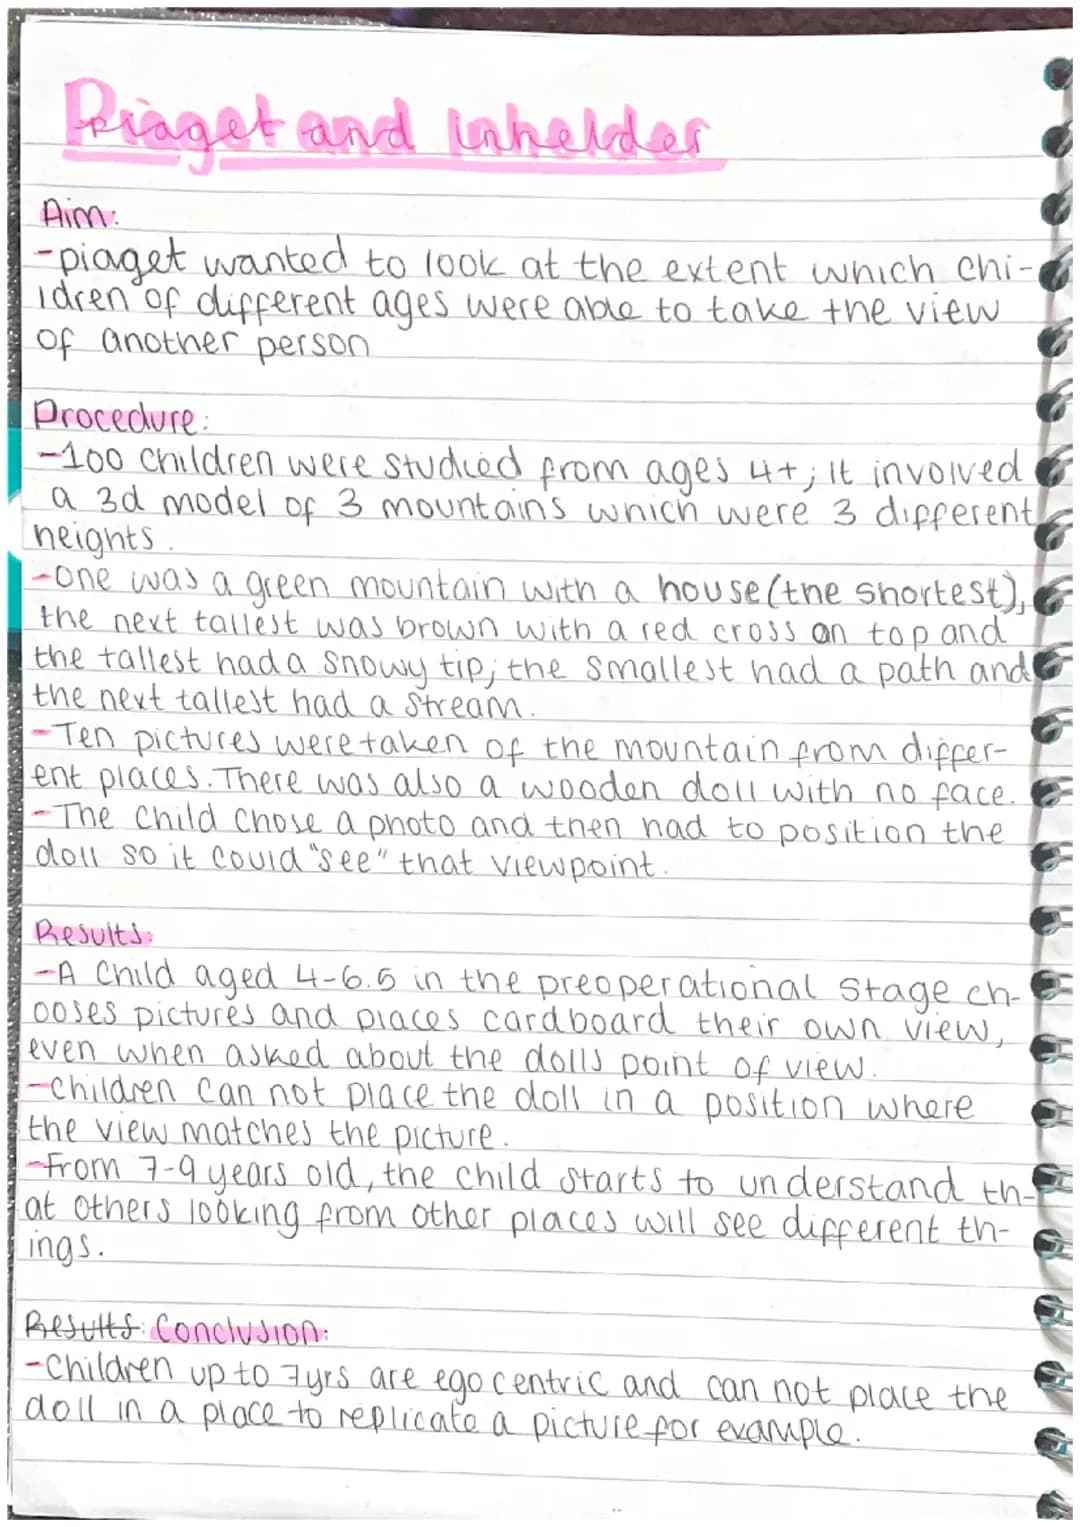 Piaget and Inhelder
Aim:
-piaget wanted to look at the extent which chi-
ldren of different ages were able to take the view
of another person
Procedure:
-100 children were studied from ages 4+; it involved
a 3d model of 3 mountains which were 3 different
heights.
-One was a green mountain with a house (the shortest),
the next tallest was brown with a red cross on top and
the tallest had a snowy tip; the smallest had a path and
the next tallest had a stream.
-Ten pictures were taken of the mountain from differ-
ent places. There was also a wooden doll with no face.
-The child chose a photo and then had to position the
doll so it could "see" that viewpoint.
Results:
-A child aged 4-6.5 in the preoperational stage ch-
ooses pictures and places cardboard their own view,
even when asked about the dolls point of view.
-Children can not place the doll in a position where
the view matches the picture.
-From 7-9 years old, the child starts to understand th-
at others looking from other places will see different th-
ings.
Results: Conclusion:
-Children up to 7yrs are egocentric and can not place the
doll in a place to replicate a picture for example.